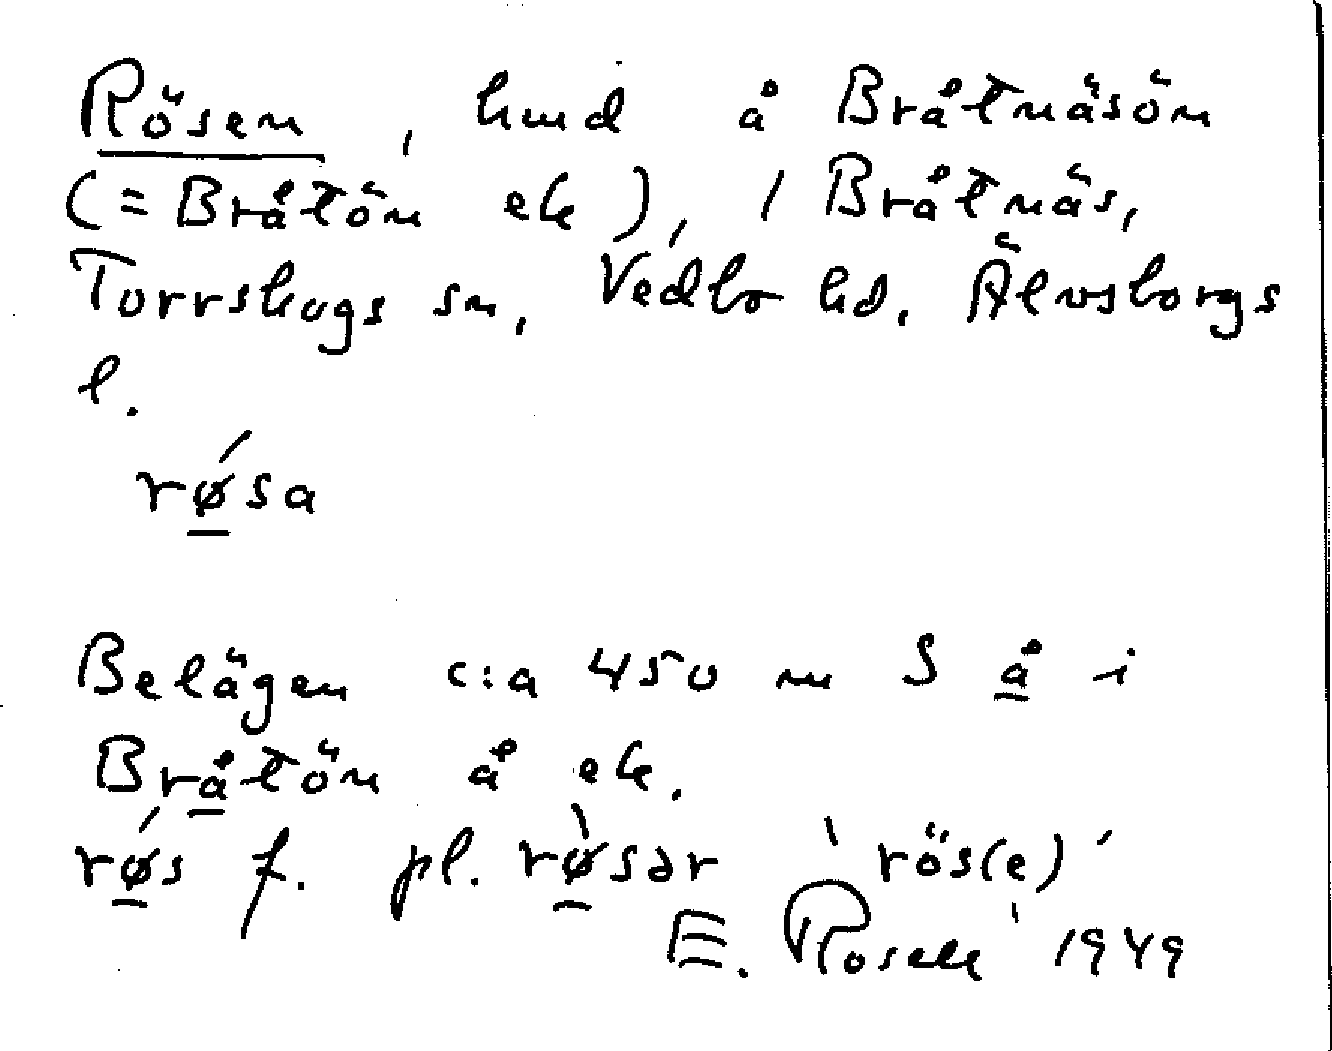 Rösen, lund å Bråtnäsön
(=Bråtön ek), / Bråtnäs,
Torrskogs sn, Vedbo hd, Älvsborgs
l.
rǿ̲sa
Belägen c:a 450 m S å̲ i
Brå̲tön å ek.
rǿ̲s f. pl. rø̲̀sər 'rös(e)'
E. Rosell 1949